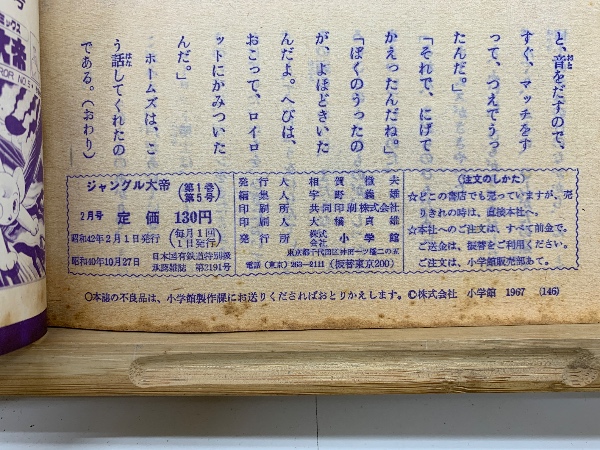 と、音をだすので、
すぐ、マッチをす
って、つえでうっ
たんだ。」
「それで、にげて
かえったんだね。」
「ぼくのうったの
が、よほどきいた
んだよ。へびは、
おこって、ロイロ
ットにかみついた
んだ。」
ホームズは、こ
う話してくれたの
である。(おわり)
ジャングル大帝 (第1巻 第5号)
2月号 定価 130円
昭和42年2月1日発行 (毎月1回 1日発行)
昭和40年10月27日 日本国有鉄道特別扱
承認雑誌 第2191号
発行人 相賀徹夫
編集人 宇野義雄
印刷所 共同印刷株式会社
印刷人 大橋貞雄
発行所 株式会社 小学館
東京都千代田区神田一ツ橋二の五
電話(東京) 263-2111 (振替東京200)
(注文のしかた)
☆どこの書店でも売っていますが、売
りきれの時は、直接本社へ。
☆本社へのご注文は、すべて前金で。
ご送金は、振替をご利用ください。
ご注文は、小学館販売部あて。
○本誌の不良品は、小学館製作課にお送りくださればおとりかえします。©株式会社 小学館 1967 (146)